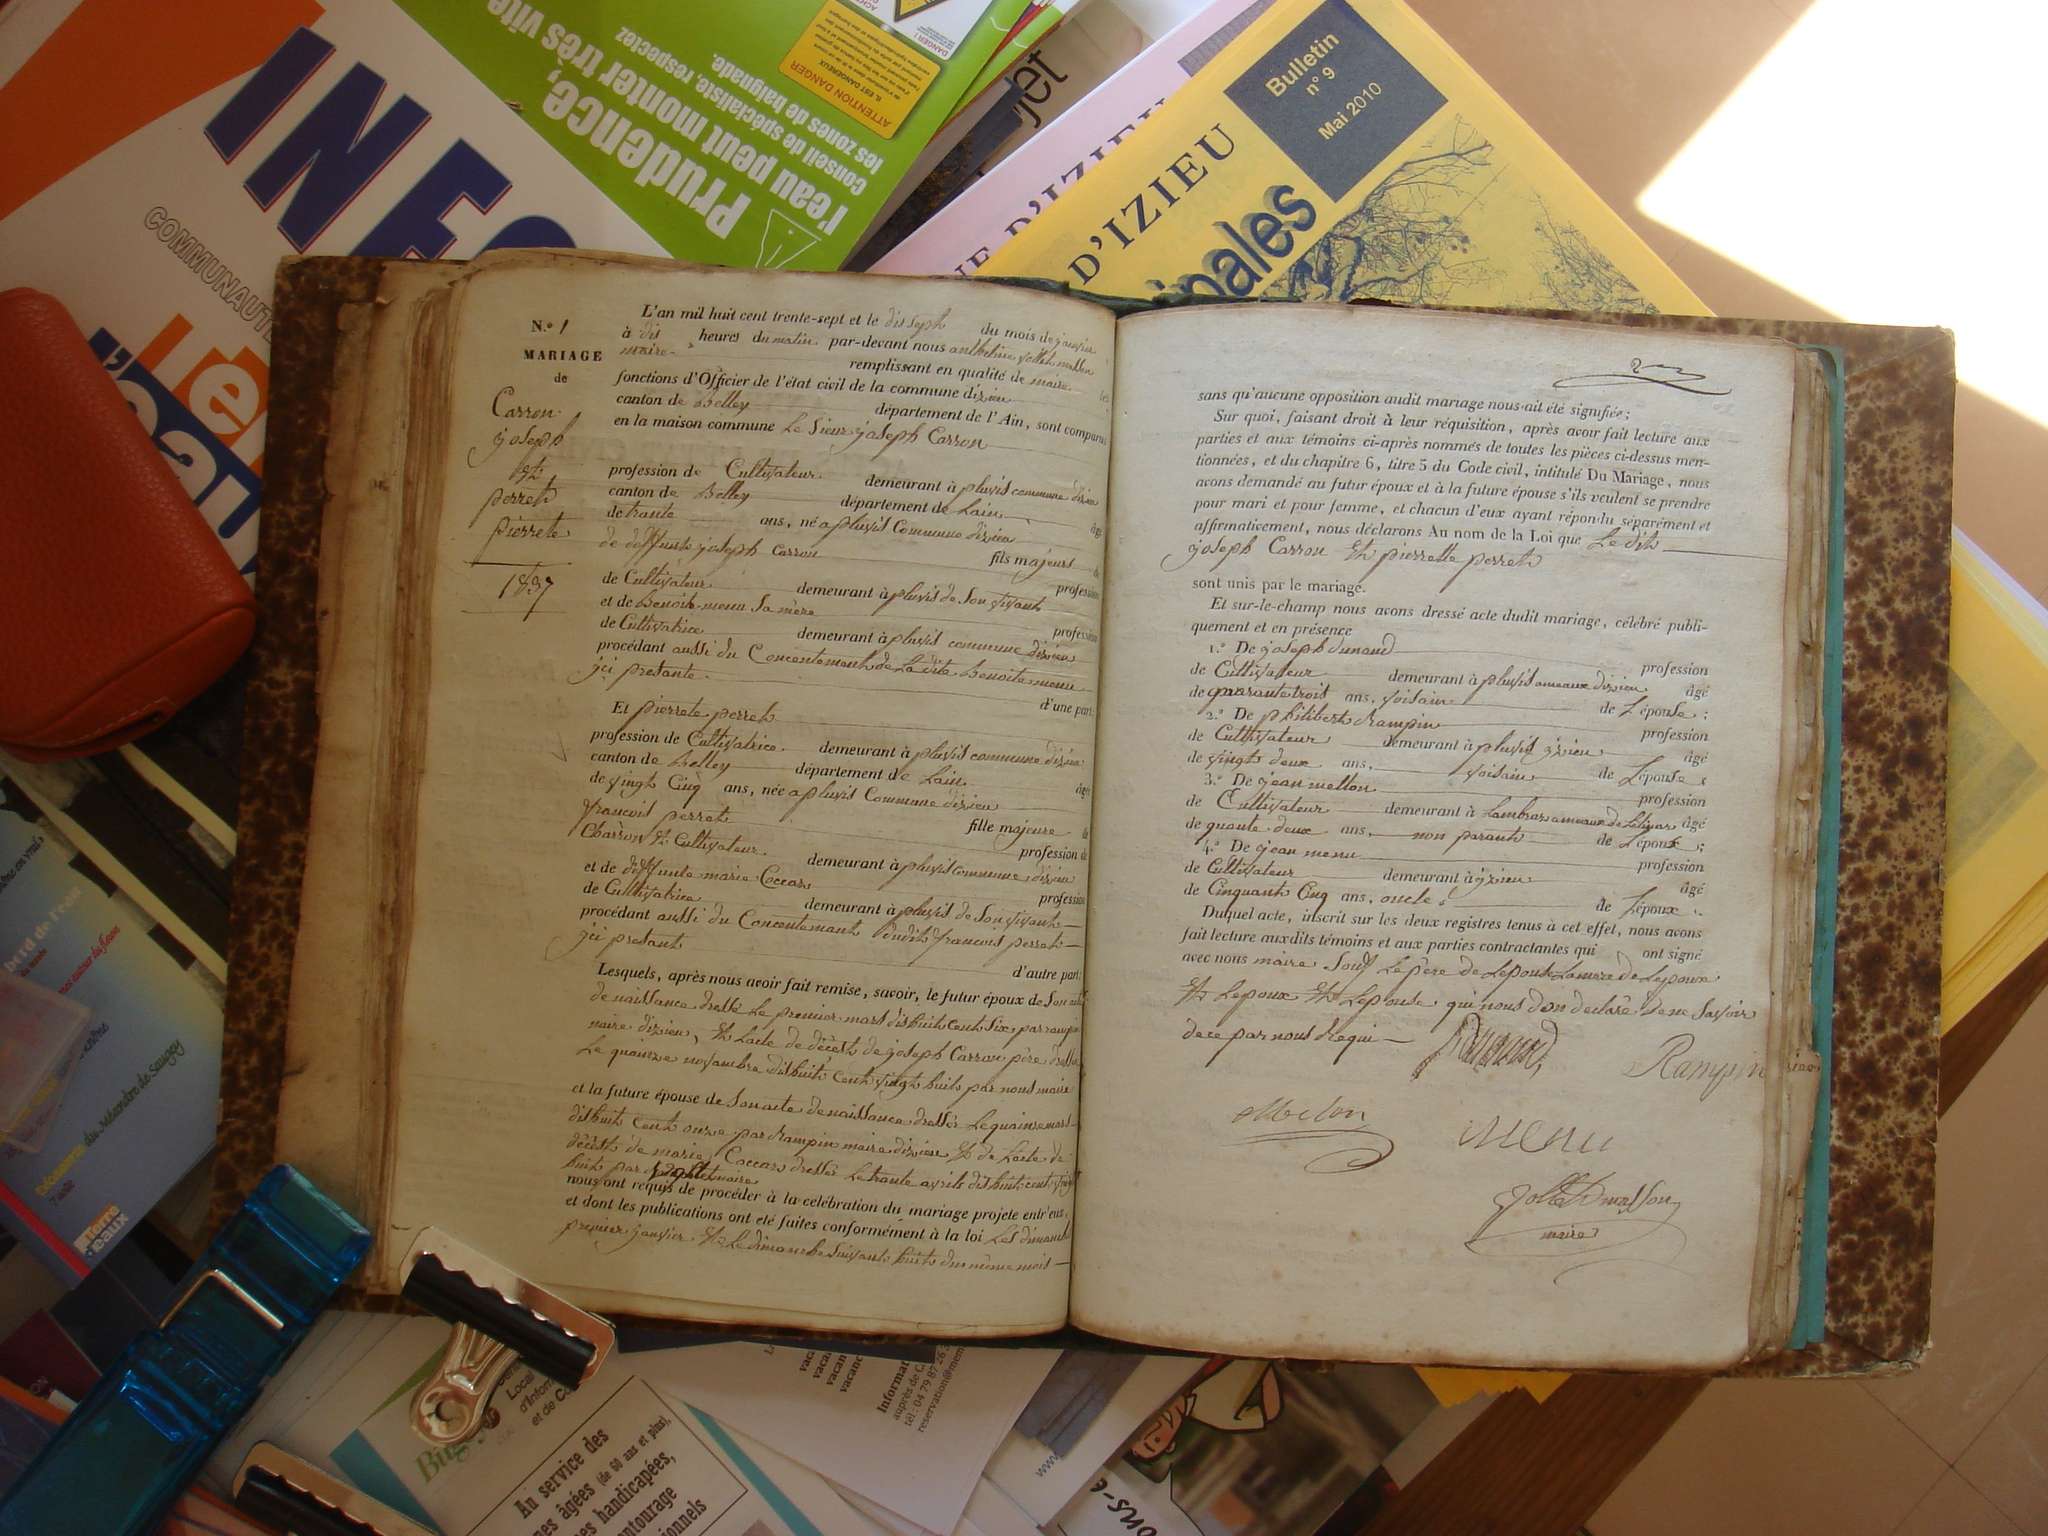 INFO
COMMUNAUTÉ
Prudence,
l'eau peut monter très vite
conseil de spécialiste, respectez
les zones de baignade.
ATTENTION DANGER
IL EST DANGEREUX
DANGER !
Bulletin
n° 9
Mai 2010
D'IZIEU
D'IZIEU
N.º 1
MARIAGE
de
Carron
joseph
et
perret
pierrete
1837
L'an mil huit cent trente-sept et le disseph du mois de janvier
à dis heures du matin par-devant nous anthelme jollet masson
maire remplissant en qualité de maire les
fonctions d'Officier de l'état civil de la commune dizieu
canton de Belley département de l'Ain, sont comparus
en la maison commune Le Sieur joseph Carron
profession de Cultivateur demeurant à pluvis commune dizieu
canton de Belley département de Lain âgé
de trante ans, né a pluvis Commune dizieu
fils majeurs de
de deffunt joseph Carron profession
de Cultivateur demeurant à pluvis de Son vivant
et de Benoite menu Sa mère profession
de Cultivatrice demeurant à pluvis commune dizieu
procédant aussi du Concentement de La dite Benoite menu
jci presante.
d'une part;
Et pierrete perret
profession de Cultivatrice demeurant à pluvis commune dizieu
canton de Belley département de Lain âgée
de vingt Cinq ans, née a pluvis Commune dizieu
fille majeure de
francois perret profession de
Charron et Cultivateur demeurant à pluvis commune dizieu
et de diffunte marie Coccar profession
de Cultivatrice demeurant à pluvis de Son vivant
procédant aussi du Concentemant dudit francois perret
jci presant
d'autre part;
Lesquels, après nous avoir fait remise, savoir, le futur époux de Son acte
de naissance dressé Le premier mars dishuit cent six par rampin
maire dizieu, et Lacte de décest de joseph Carron père dressé
Le quainze novambre dishuit cent vingt huit par nous maire
et la future épouse de Son acte de naissance dressée Le quainze mars
dishuit cent onze par Rampin maire dizieu et de Lacte de
décest de marie Coccar dressée Le trante avril dishuit cent vingt
huit par maire
nous ont requis de procéder à la célébration du mariage projeté entr'eux,
et dont les publications ont été faites conformément à la loi Les dimanche
premier janvier et Le dimanche Suivant huit du même mois
2
sans qu'aucune opposition audit mariage nous ait été signifiée;
Sur quoi, faisant droit à leur réquisition, après avoir fait lecture aux
parties et aux témoins ci-après nommés de toutes les pièces ci-dessus men-
tionnées, et du chapitre 6, titre 5 du Code civil, intitulé Du Mariage, nous
avons demandé au futur époux et à la future épouse s'ils veulent se prendre
pour mari et pour femme, et chacun d'eux ayant répondu séparément et
affirmativement, nous déclarons Au nom de la Loi que Le dit
joseph Carron et pierrette perret
sont unis par le mariage.
Et sur-le-champ nous avons dressé acte dudit mariage, célébré publi-
quement et en présence
1.º De joseph dunand profession
de Cultivateur demeurant à pluvis ameaux dizieu âgé
de quarante trois ans, voisain de Lépouse;
2.º De philibert Rampin profession
de Cultivateur demeurant à pluvis jzieu âgé
de vingt deux ans, voisain de Lépouse;
3.º De jean mellon profession
de Cultivateur demeurant à Lambraz ameaux de Lelinaz âgé
de quante deux ans, non parant de Lépoux;
4.º De jean menu profession
de Cultivateur demeurant à jzieu âgé
de Cinquant Cinq ans, oncle de Lépoux.
Duquel acte, inscrit sur les deux registres tenus à cet effet, nous avons
fait lecture auxdits témoins et aux parties contractantes qui ont signé
avec nous maire Souf Le père de Lepouse Lamere de Lepoux
et Lepoux et Lepouse qui nous don declaré de ne Savoir
de ce par nous Requi
Dunand
Rampin
Melon
Menu
Jollet masson
maire
Local
d'Inform
An service des
âgées (de 60 ans et plus),
handicapées,
tourage
Informat
auprès de
tél : 04 79 87 26
reservation@mem
Terre
d'eaux